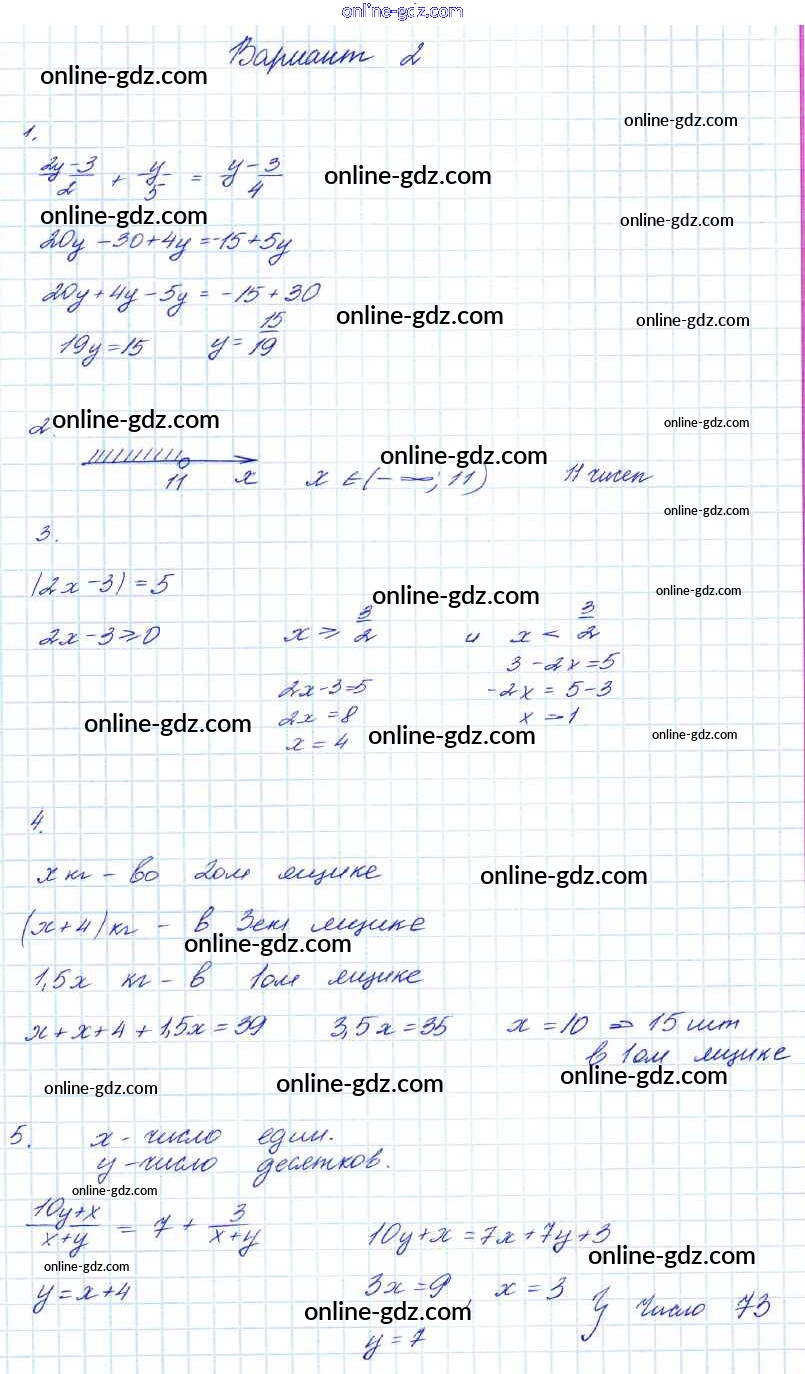 online-gdz.com
Вариант 2
online-gdz.com
online-gdz.com
1.
(2y-3)/2 + y/5 = (y-3)/4
online-gdz.com
online-gdz.com
online-gdz.com
20y - 30 + 4y = -15 + 5y
20y + 4y - 5y = -15 + 30
online-gdz.com
online-gdz.com
19y = 15 y = 15/19
2.
online-gdz.com
online-gdz.com
online-gdz.com
11 x x ∈ (-∞; 11) 11 чисел
online-gdz.com
3.
|2x-3| = 5
online-gdz.com
online-gdz.com
2x-3≥0 x ≥ 3/2 и x < 3/2
3 - 2x = 5
2x-3=5 -2x = 5-3
2x = 8 x = -1
x = 4
online-gdz.com
online-gdz.com
online-gdz.com
4.
x кг - во 2ом ящике
online-gdz.com
(x+4) кг - в 3ем ящике
online-gdz.com
1,5x кг - в 1ом ящике
x + x + 4 + 1,5x = 39 3,5x = 35 x = 10 ⇒ 15 шт
в 1ом ящике
online-gdz.com
online-gdz.com
online-gdz.com
5. x - число един.
y - число десятков.
online-gdz.com
(10y+x)/(x+y) = 7 + 3/(x+y) 10y+x = 7x+7y+3
online-gdz.com
online-gdz.com
y = x+4 3x = 9, x = 3 число 73
online-gdz.com
online-gdz.com
y = 7